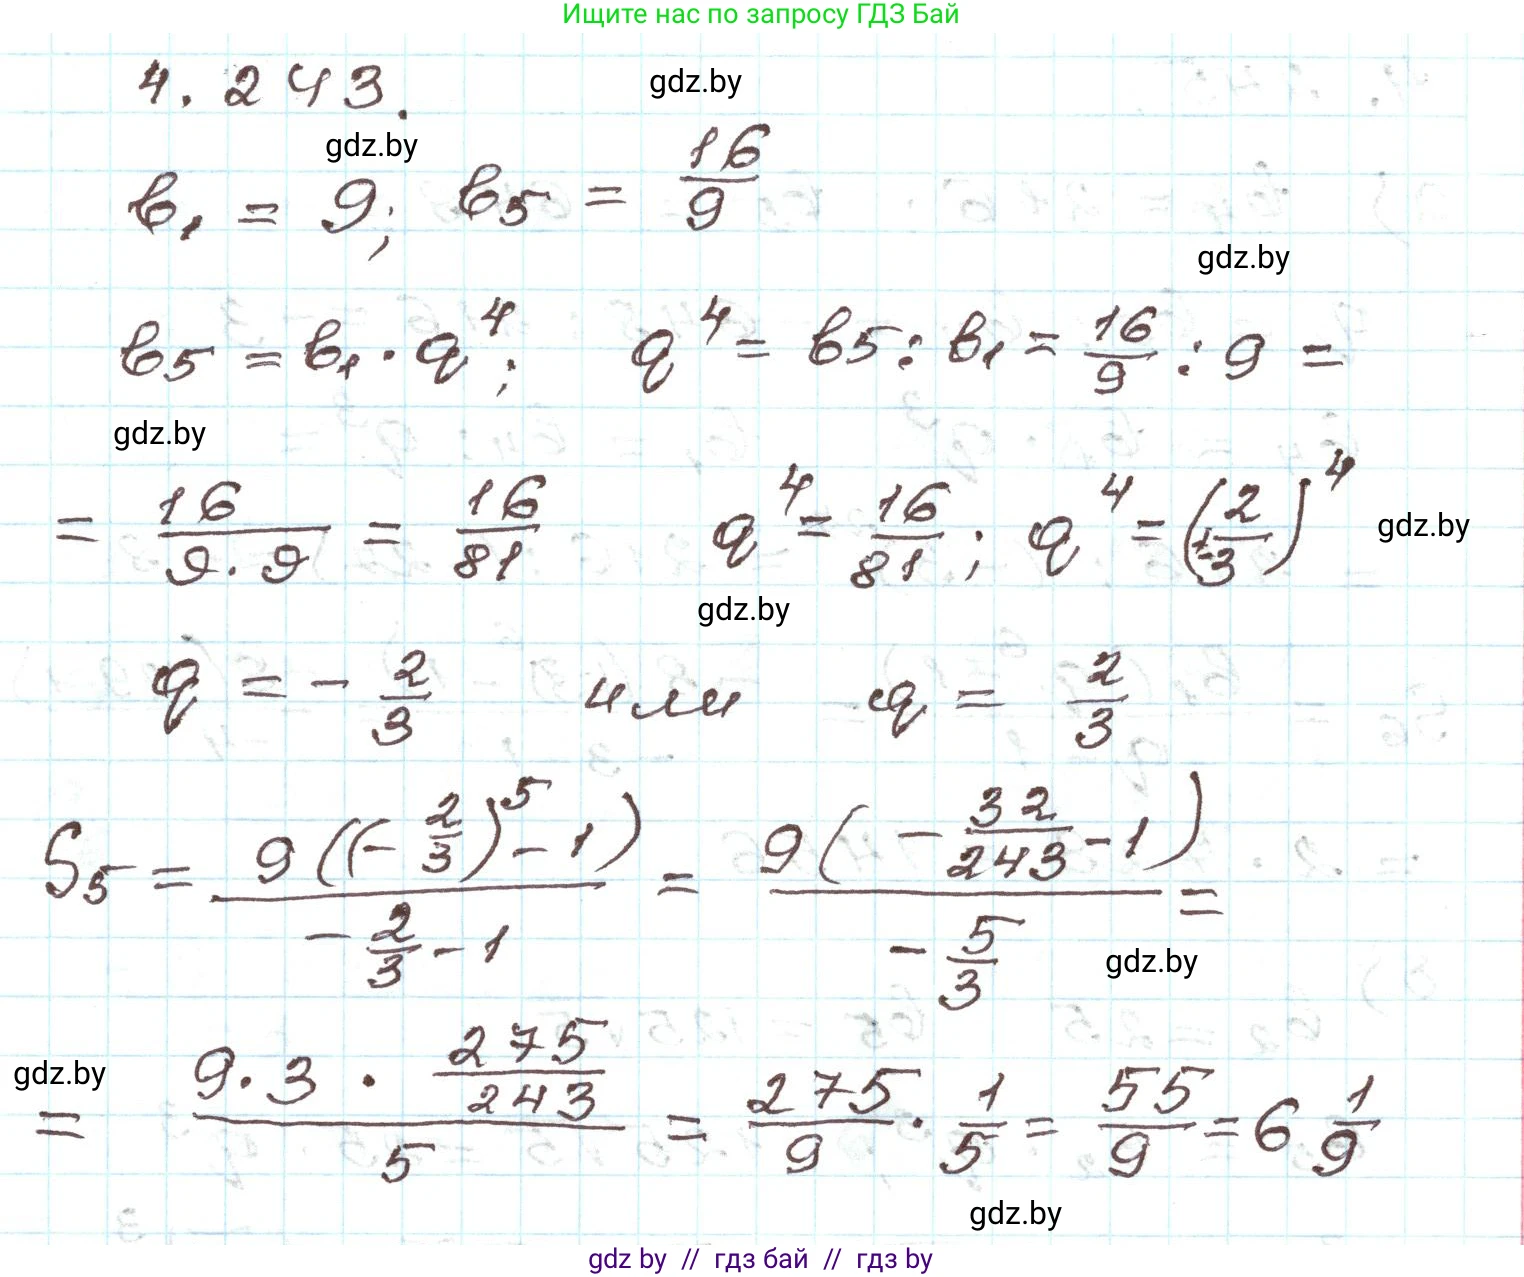 Ищите нас по запросу ГДЗ Бай
4.243.
gdz.by
gdz.by
в₁ = 9; в₅ = 16/9
gdz.by
в₅ = в₁ · q⁴; q⁴ = в₅ : в₁ = 16/9 : 9 =
gdz.by
= 16/(9·9) = 16/81 q⁴ = 16/81; q⁴ = (±2/3)⁴
gdz.by
gdz.by
q = -2/3 или q = 2/3
S₅ = 9((-2/3)⁵ - 1)/(-2/3 - 1) = 9(-32/243 - 1)/(-5/3) =
gdz.by
gdz.by
= (9·3 · 275/243)/5 = 275/9 · 1/5 = 55/9 = 6 1/9
gdz.by
gdz by // гдз бай // гдз by